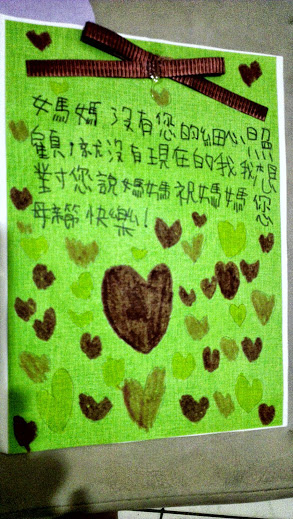 媽媽沒有您的細心照
顧,就沒有現在的我,我想
對您說媽媽祝媽媽您
母親節快樂!